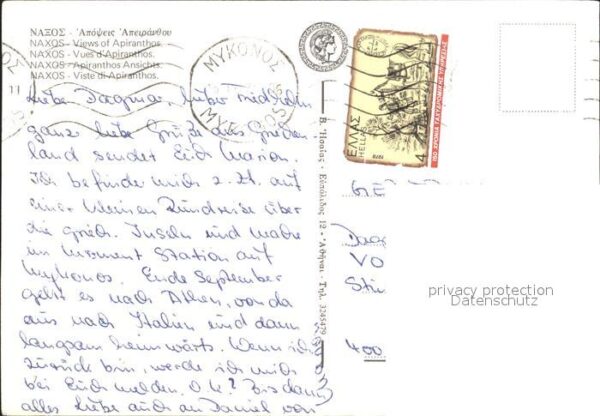 ΝΑΞΟΣ - Ἀπόψεις Ἀπειράνθου
NAXOS - Views of Apiranthos.
NAXOS - Vues d'Apiranthos.
NAXOS - Apiranthos Ansichts.
NAXOS - Viste di Apiranthos.
Liebe Dagmar, lieber
ganz liebe Grüße aus Griechen
land sendet Euch Marion.
Ich befinde mich z. Zt. auf
einer kleinen Rundreise über
die griech. Inseln und mache
im Moment Station auf
Mykonos. Ende September
geht es nach Athen, von da
aus nach Italien und dann
langsam heimwärts. Wenn ich
zurück bin, werde ich mich
bei Euch melden. O.K.? Bis dann
alles Liebe auch an Daniel von
ΜΥΚΟΝΟΣ
ΕΛΛΑΣ
HELLAS
1978
4
150 ΧΡΟΝΙΑ ΤΑΧΥΔΡΟΜΙΚΗΣ ΥΠΗΡΕΣΙΑΣ
Εὐπόλιδος 12 - Ἀθῆναι - Τηλ. 3245479
Dag
VO
400
privacy protection
Datenschutz